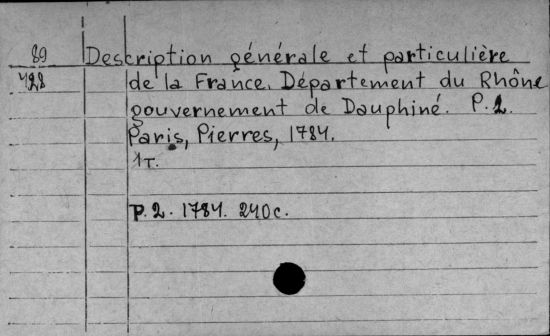 89 Description générale et particulière
428 de la France. Département du Rhône
gouvernement de Dauphiné. P. 2.
Paris, Pierres, 1784.
1т.
P. 2. 1784. 240 c.